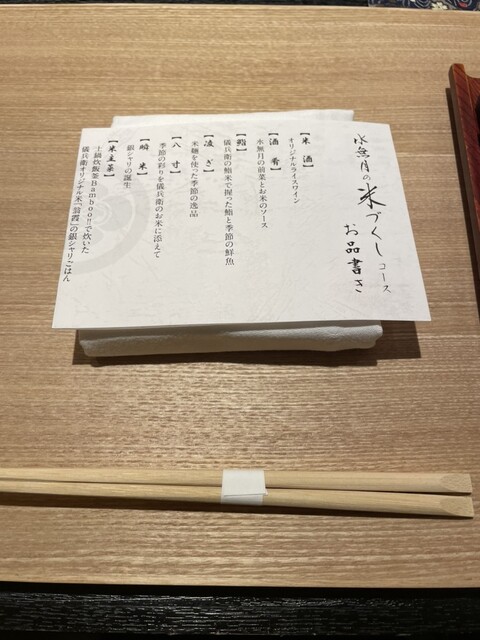 水無月の米づくしコース
お品書き
【米 酒】
オリジナルライスワイン
【酒 肴】
水無月の前菜とお米のソース
【鮨】
儀兵衛の鮨米で握った鮨と季節の鮮魚
【凌 ぎ】
米麹を使った季節の逸品
【八 寸】
季節の彩りを儀兵衛のお米に添えて
【瞬 米】
銀シャリの誕生
【米主菜】
土鍋炊飯釜Bamboo!!で炊いた
儀兵衛オリジナル米「翁霞」の銀シャリごはん